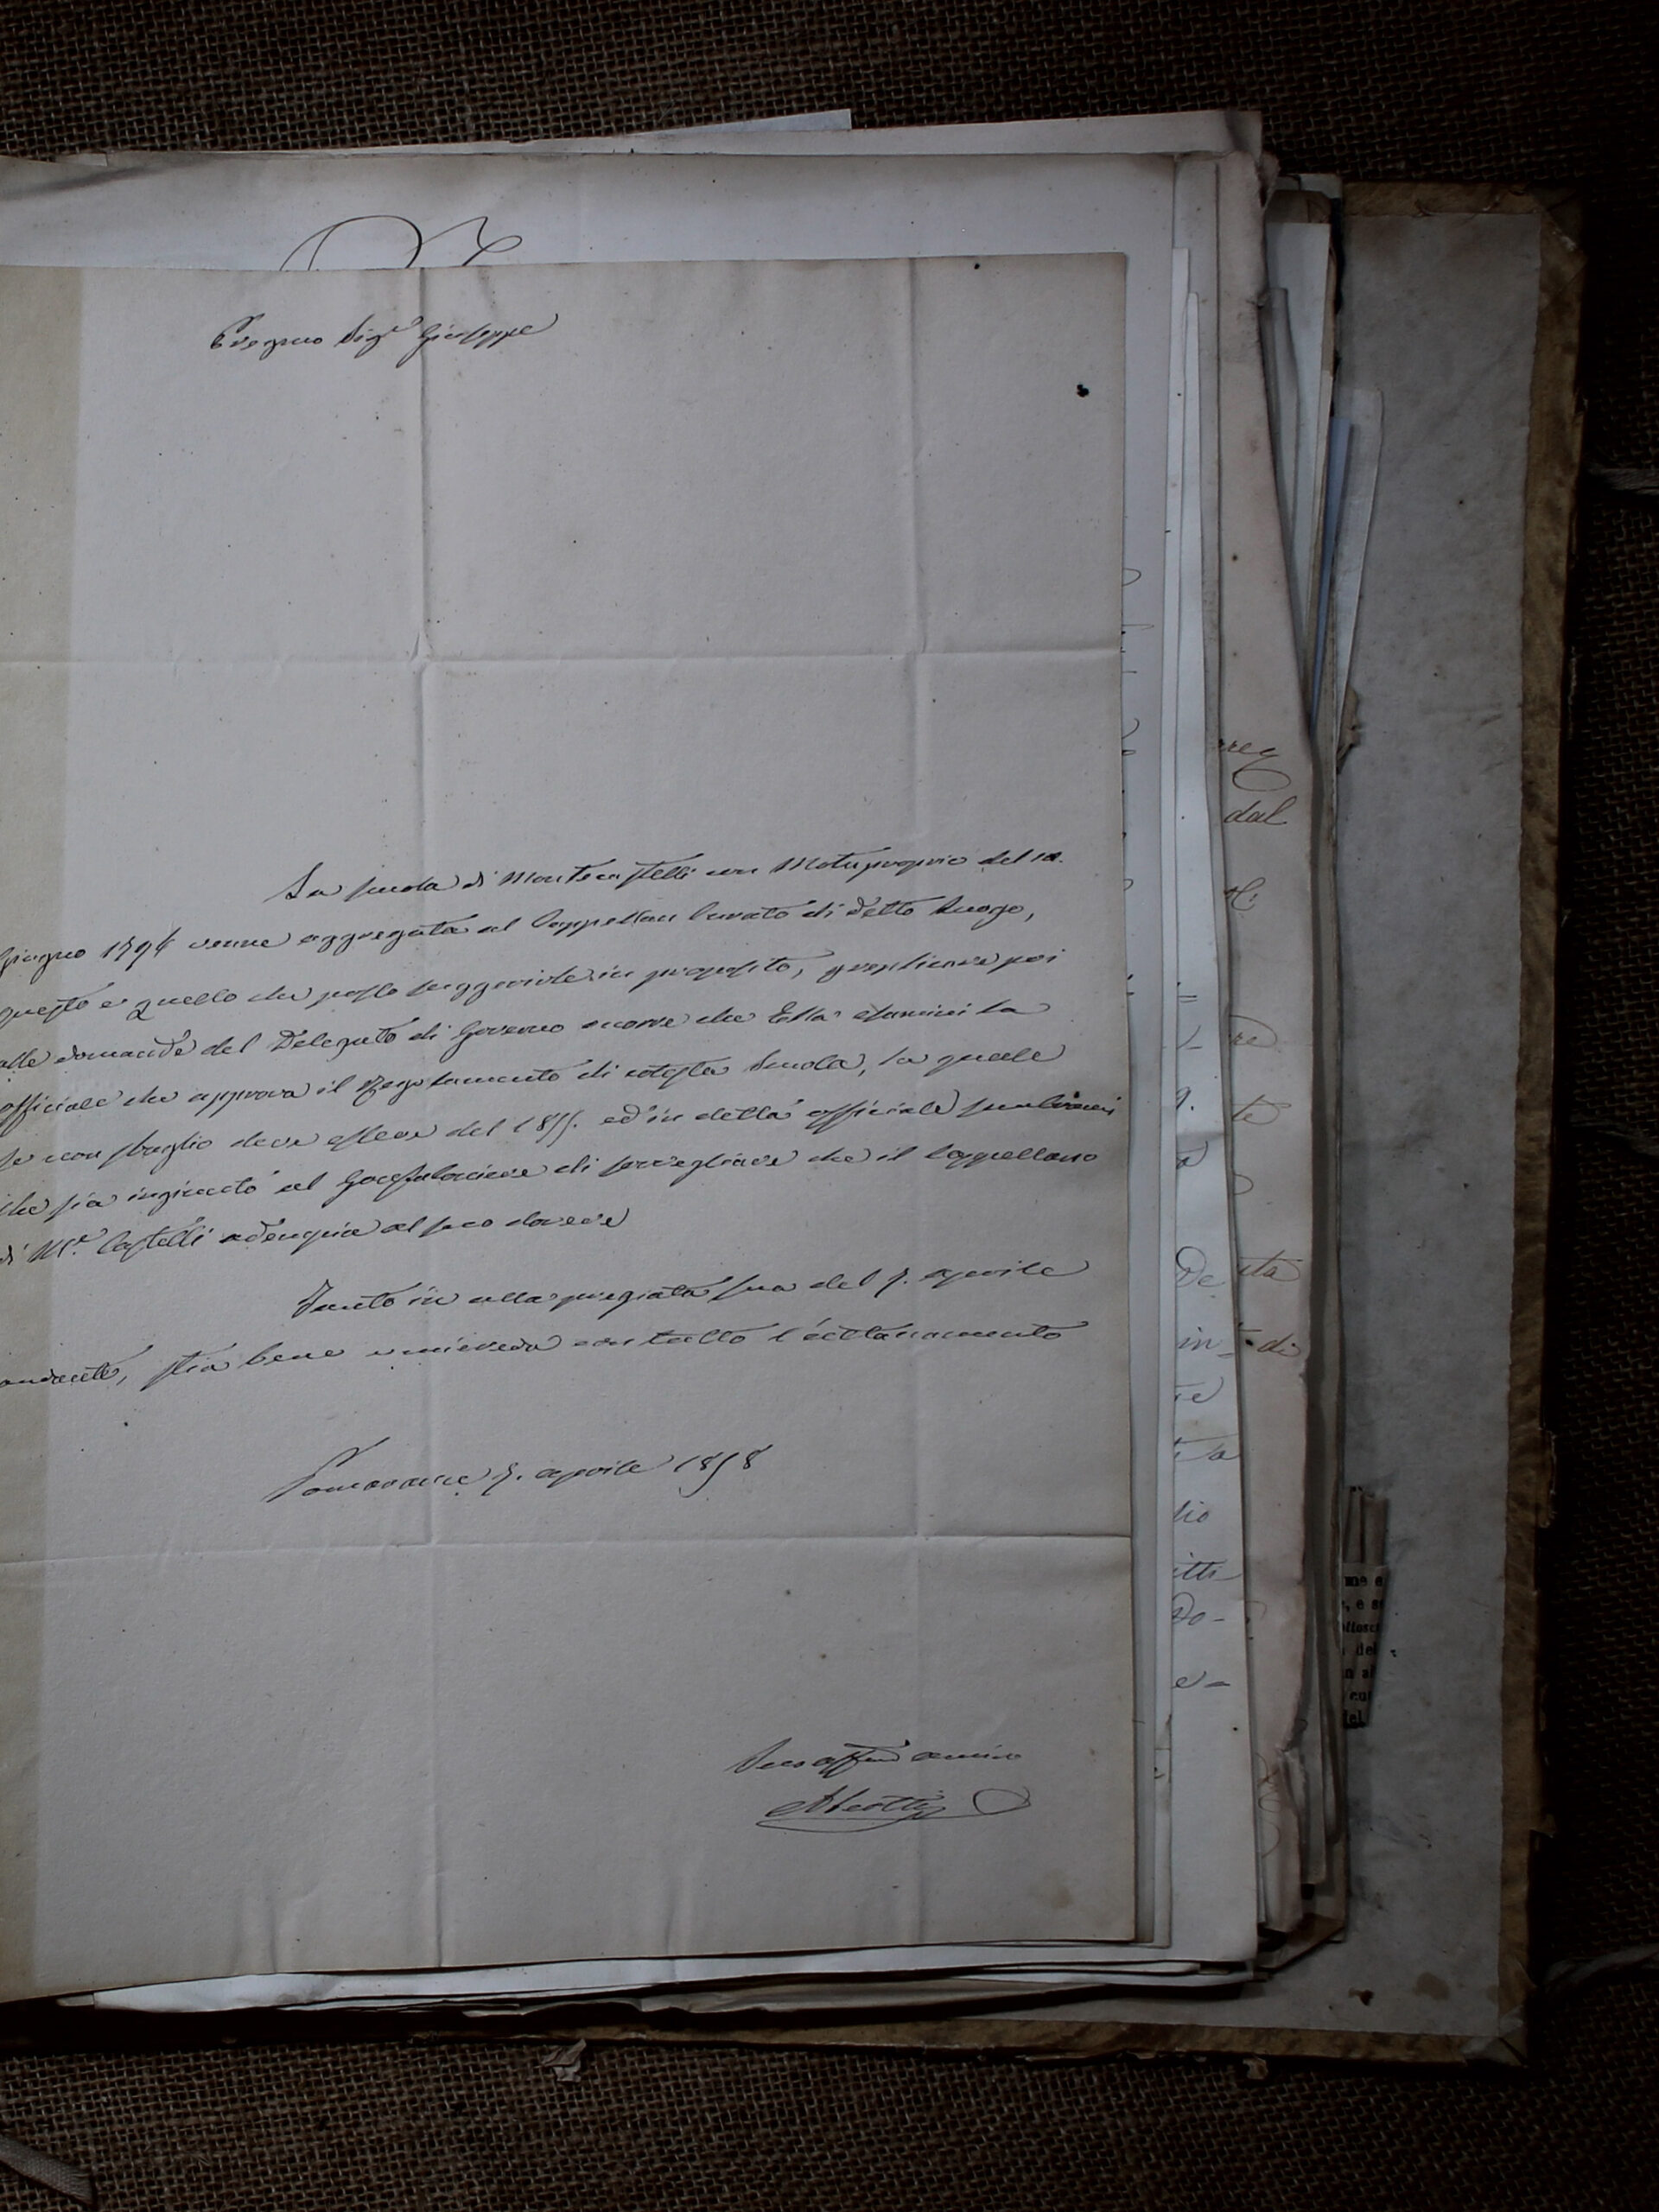 Pregmo Sigr Giuseppe
La scuola di Montecastelli con Motuproprio del
Giugno 1794 venne aggregata al Cappellan Curato di detto Luogo,
questo è quello che posso suggerirle in proposito, per
alle domande del Delegato di Governo occorre che Ella esamini la
officiale che approva il Regolamento di cotesta Scuola, la quale
se non sbaglio deve essere del 1855. ed in detta officiale
che sia ingiunto al Gonfaloniere di sorvegliare che il Cappellano
di Me Castelli adempia al suo dovere
Tanto in alla pregiata sua del 7. aprile
andante, stia bene e mi creda con tutto l'attaccamento
Pomarance 7. aprile 1858
Suo affmo amico
dal
te
ita
in
di
lio
itti
me e
, e s
del
n al
del